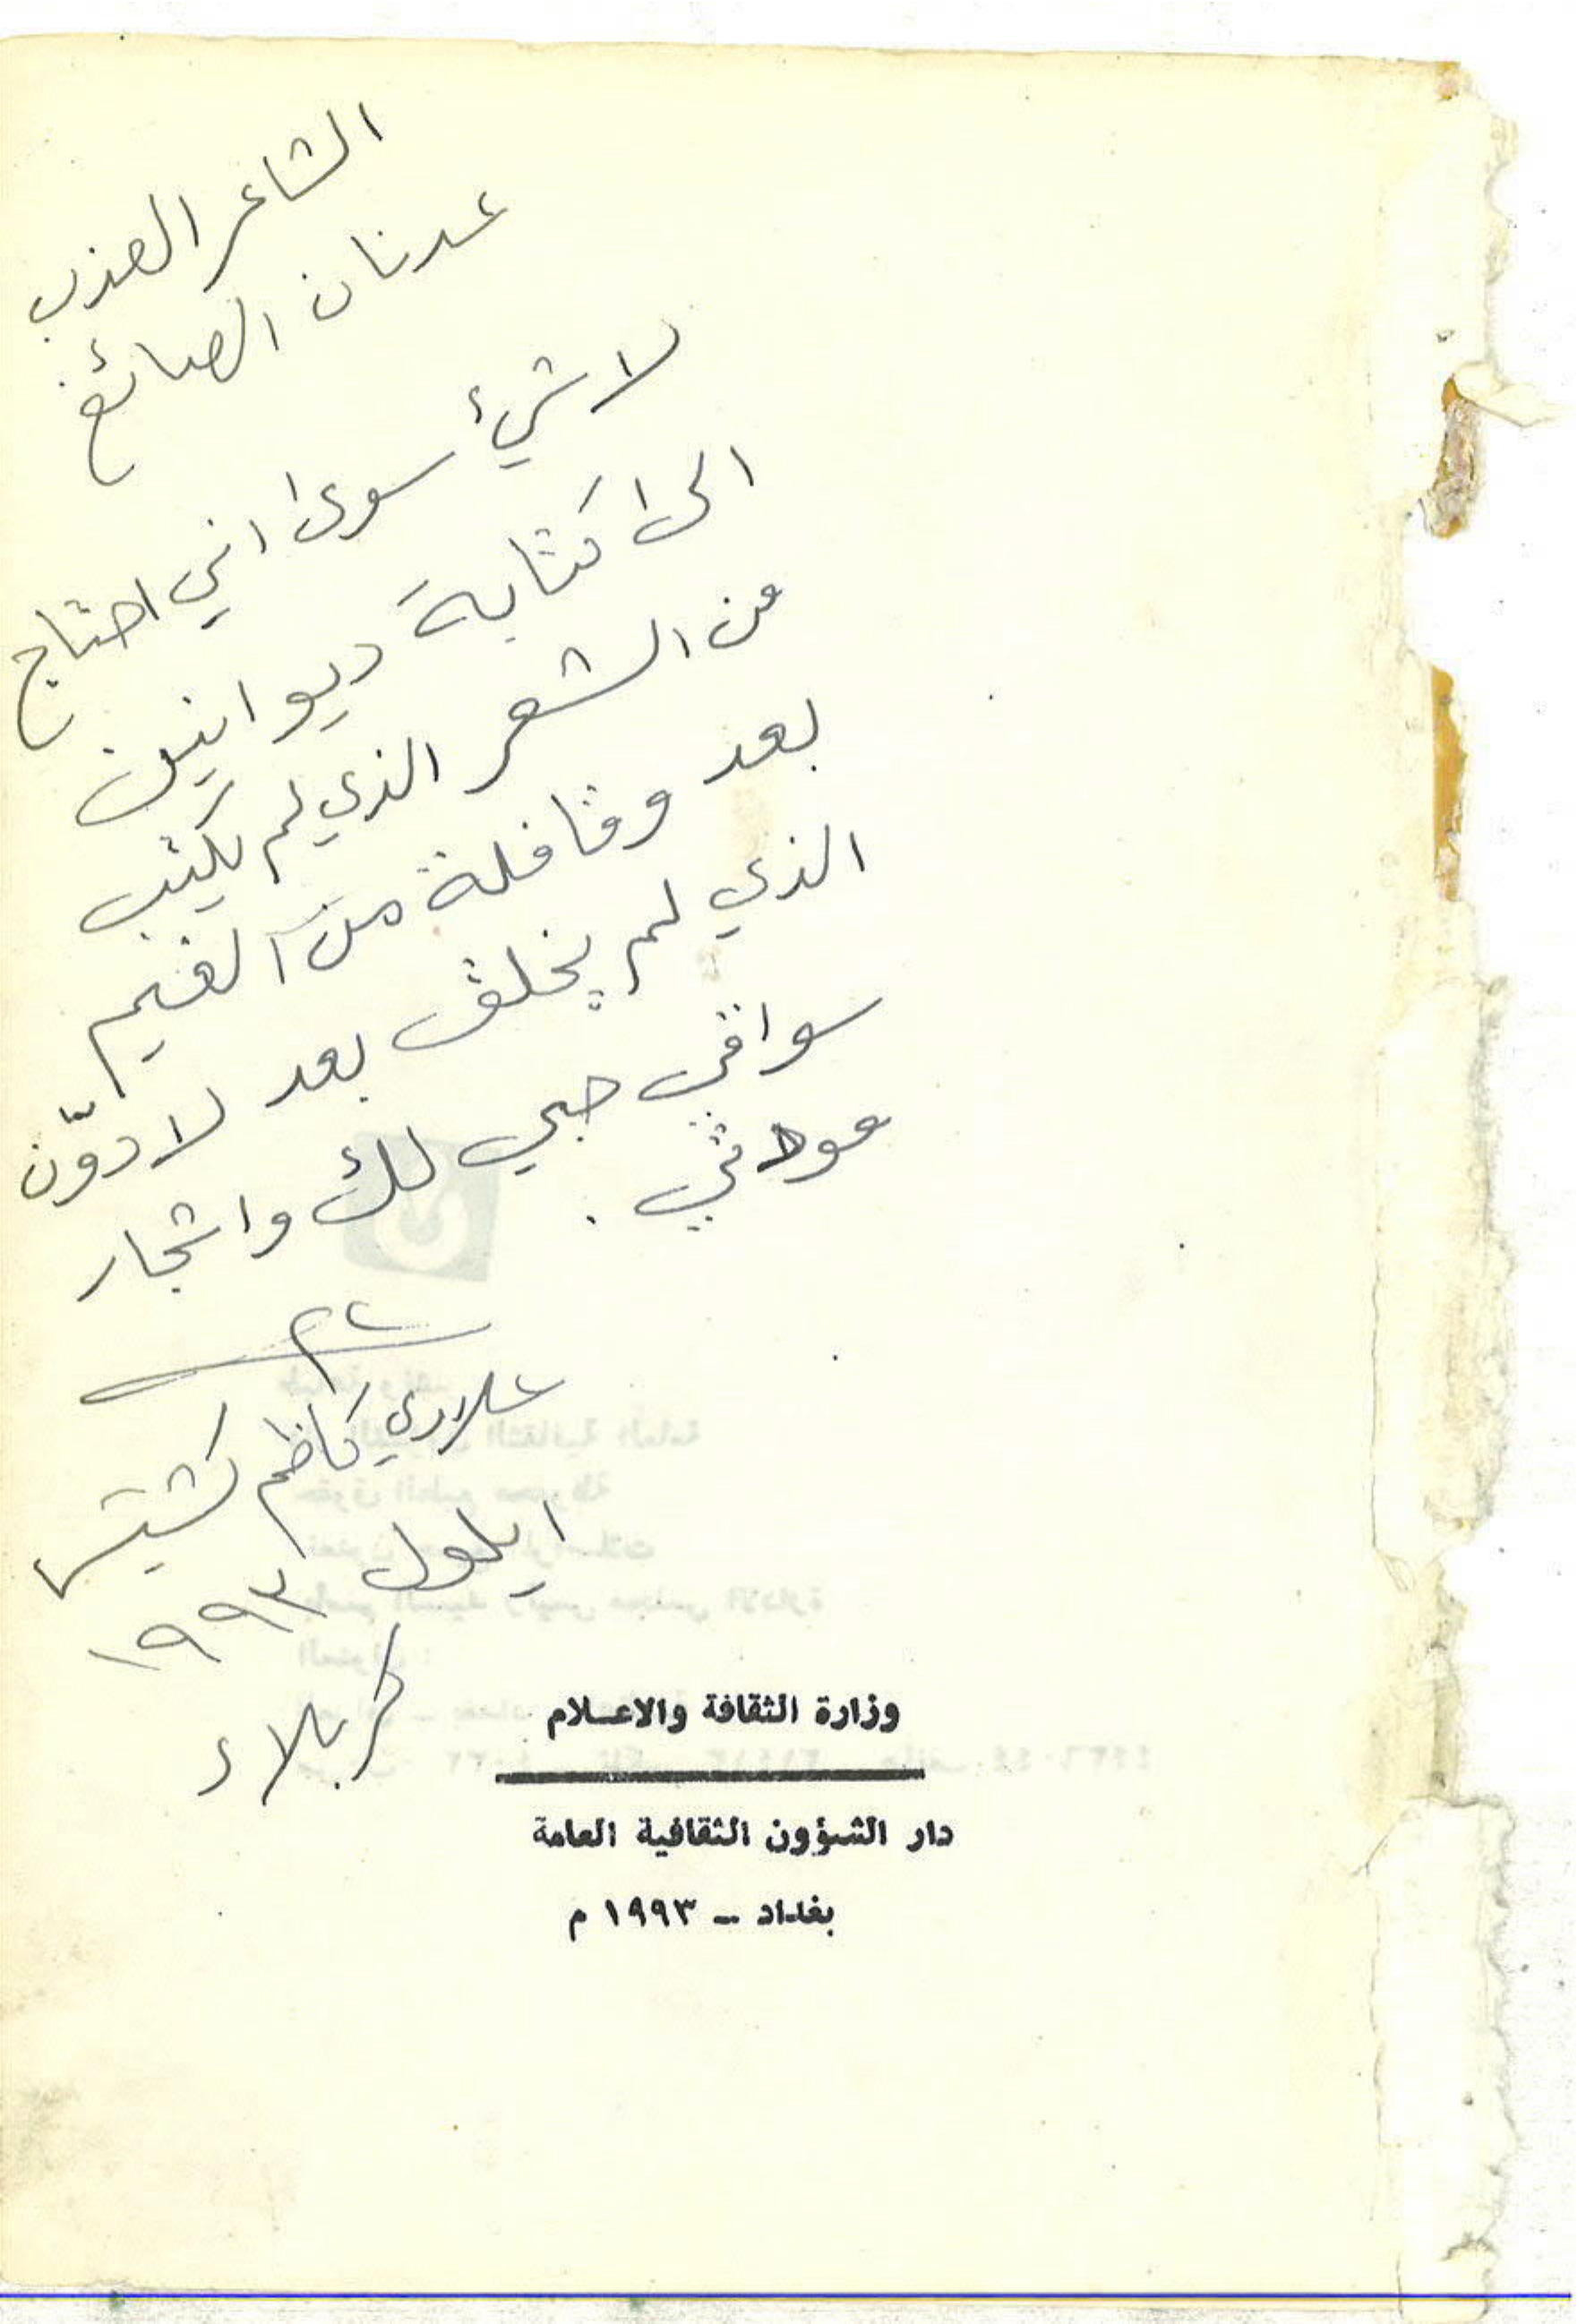 الشاعر العذب
عدنان الصائغ
لا شيء سوى اني احتاج
الى كتابة ديوانين
من الشعر الذي لم يكتب
بعد وقافلة من الغيم
الذي لم يخلق بعد لادوّن
سواقي حبي لك واشجار
مودتي .
كاظم
ايلول ١٩٩٣
كربلاء
وزارة الثقافة والاعلام
دار الشؤون الثقافية العامة
بغداد - ١٩٩٣ م